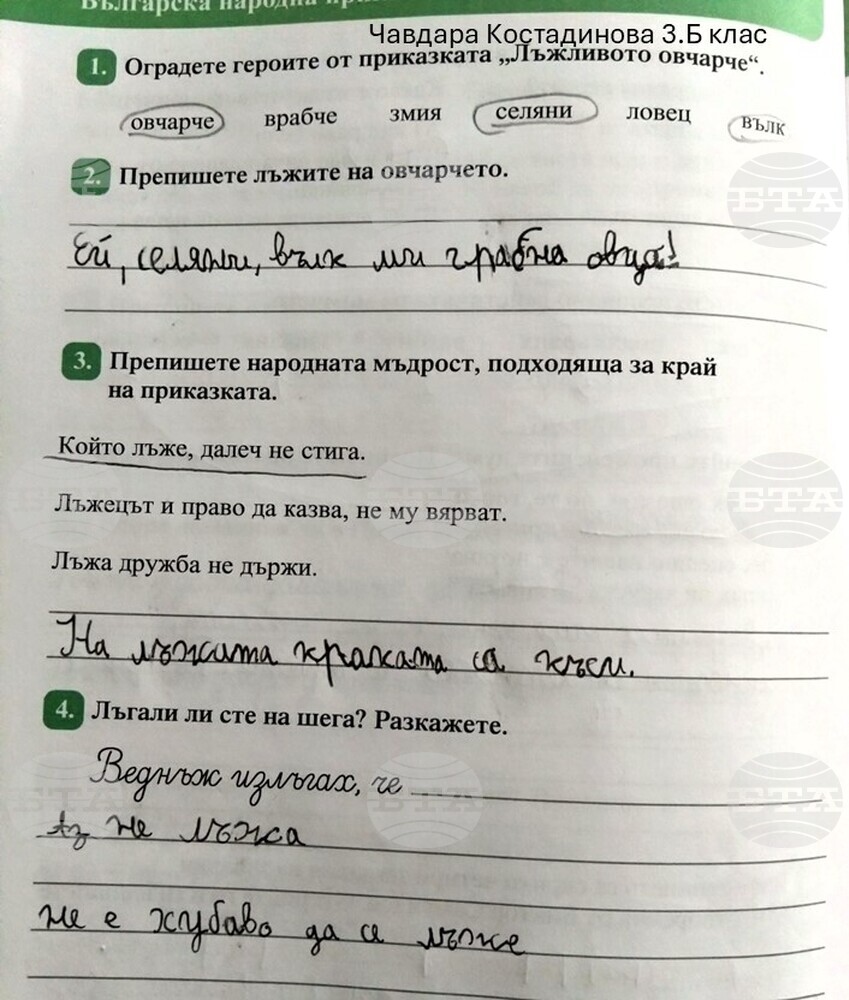 Българска народна
Чавдара Костадинова 3.Б клас
1. Оградете героите от приказката „Лъжливото овчарче“.
овчарче врабче змия селяни ловец вълк
2. Препишете лъжите на овчарчето.
Ей, селяни, вълк ми грабна овца!
3. Препишете народната мъдрост, подходяща за край
на приказката.
Който лъже, далеч не стига.
Лъжецът и право да казва, не му вярват.
Лъжа дружба не държи.
На лъжита краката са къси.
4. Лъгали ли сте на шега? Разкажете.
Веднъж излъгах, че
Аз не лъжа
не е хубаво да се лъже
БТА
БТА
БТА
БТА
БТА
БТА
БТА